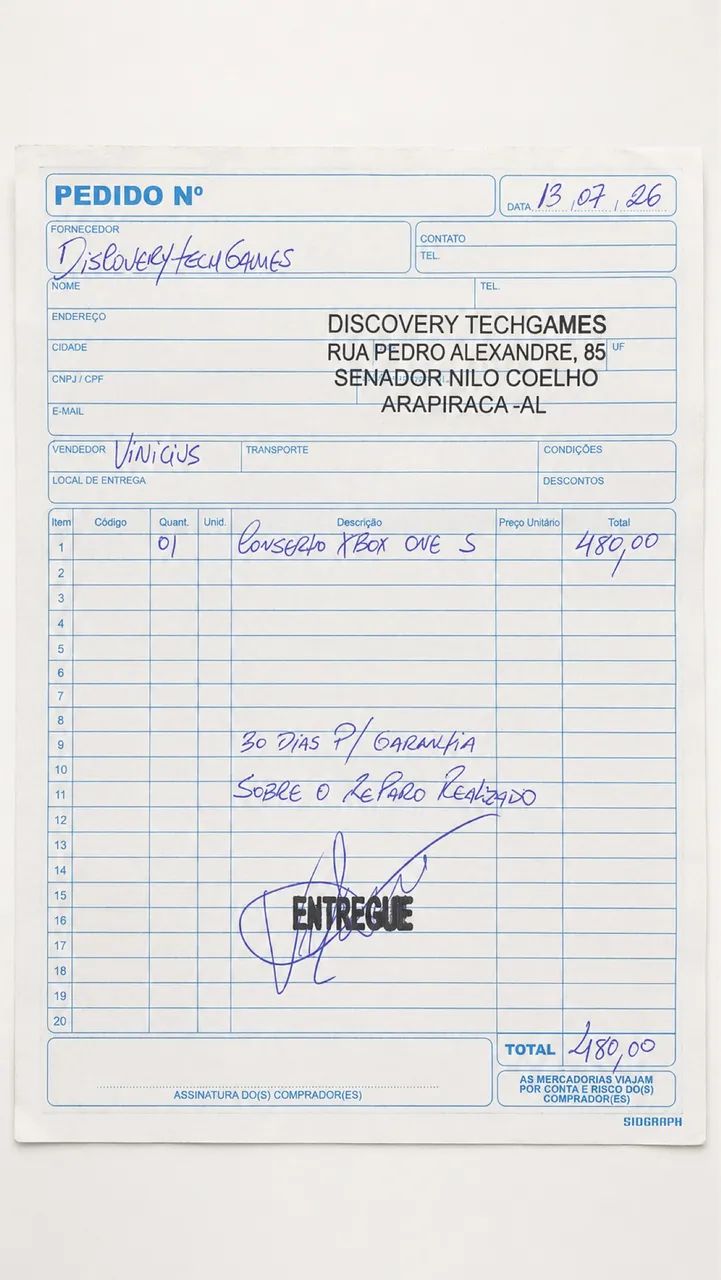 PEDIDO Nº
DATA 13 , 07 , 26
FORNECEDOR
DiscoverytechGames
CONTATO
TEL.
NOME
TEL.
ENDEREÇO
DISCOVERY TECHGAMES
CIDADE
RUA PEDRO ALEXANDRE, 85
UF
CNPJ / CPF
SENADOR NILO COELHO
E-MAIL
ARAPIRACA -AL
VENDEDOR Vinicius
TRANSPORTE
CONDIÇÕES
LOCAL DE ENTREGA
DESCONTOS
Item Código Quant. Unid. Descrição Preço Unitário Total
1 01 CONSERTO XBOX ONE S 480,00
2
3
4
5
6
7
8
9 30 DIAS P/ GARANTIA
10
11 SOBRE O REPARO REALIZADO
12
13
14
15
16 ENTREGUE
17
18
19
20
TOTAL 480,00
ASSINATURA DO(S) COMPRADOR(ES)
AS MERCADORIAS VIAJAM
POR CONTA E RISCO DO(S)
COMPRADOR(ES)
SIDGRAPH